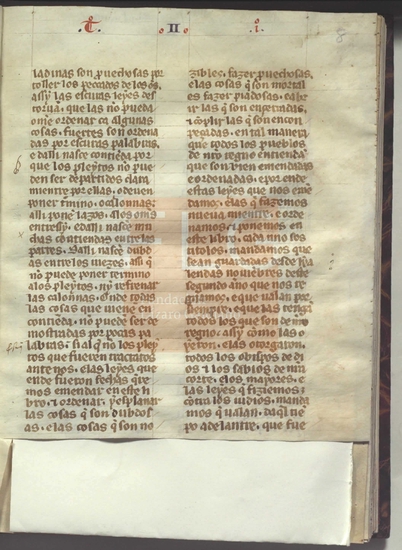 ·T· · II · · i ·
8
ladinas son puechosas por
toller los pecados de los ōs,
assy las escuras leyes des
torua, que las no pueda
ome ordenar ca algunas
cosas, fuertes son ordena
das por escuras palabras,
e dalli nasce contieda por
que los pleytos no pue
den ser departidos clara
mientre por ellas, o deuen
poner
alli pone lazos, a los om̄s
entressy, e dalli nasce mu
chas contiendas entre las
partes, Dalli nasce dubd
as entre los iuezes, assi q̄
no puede poner termino
a los pleytos, ny refrenar
las calonnas, Onde todas
las cosas que viene en
contieda, no puede ser de
mostradas por pocas pa
labras, si al q̄ no los pley
tos que fueren tractatos
ante nos, e las leyes que
ende fueron fechas q̄re
mos emendar en este li
bro, e ordenar, y esplanar
las cosas q̄ son dubdos
as, e las cosas q̄ son no
zibles, fazer puechosas,
e las cosas q̄ son mortal
es fazer piadosas,
rir las q̄ son cerradas,
e cōplir las q̄ son encon
pecadas, en tal manera
que todos los pueblos
de nr̄o regno entienda
que son bien emendadas
e ordenadas, e por ende
estas leyes que nos em̄
damos, e las q̄ fazemos
nueua miente, e orde
namos, e ponemos en
este libro, cada uno sos
titolos, mandamos que
sean guardadas desde ka
lendas nouiebres deste
segundo ano que nos re
gnamos, e que ualan por
siempre, e que las tenga
todos los que son de nr̄o
regno, assy cōme las o
yeron, e las otorgaron,
todos los obispos de di
os e los sabios de nr̄a
corte, e los mayores, e
las leyes q̄ fiziemos
cōtra los iudios, manda
mos q̄ ualan, daql̄ tie
po adelantre, que fue